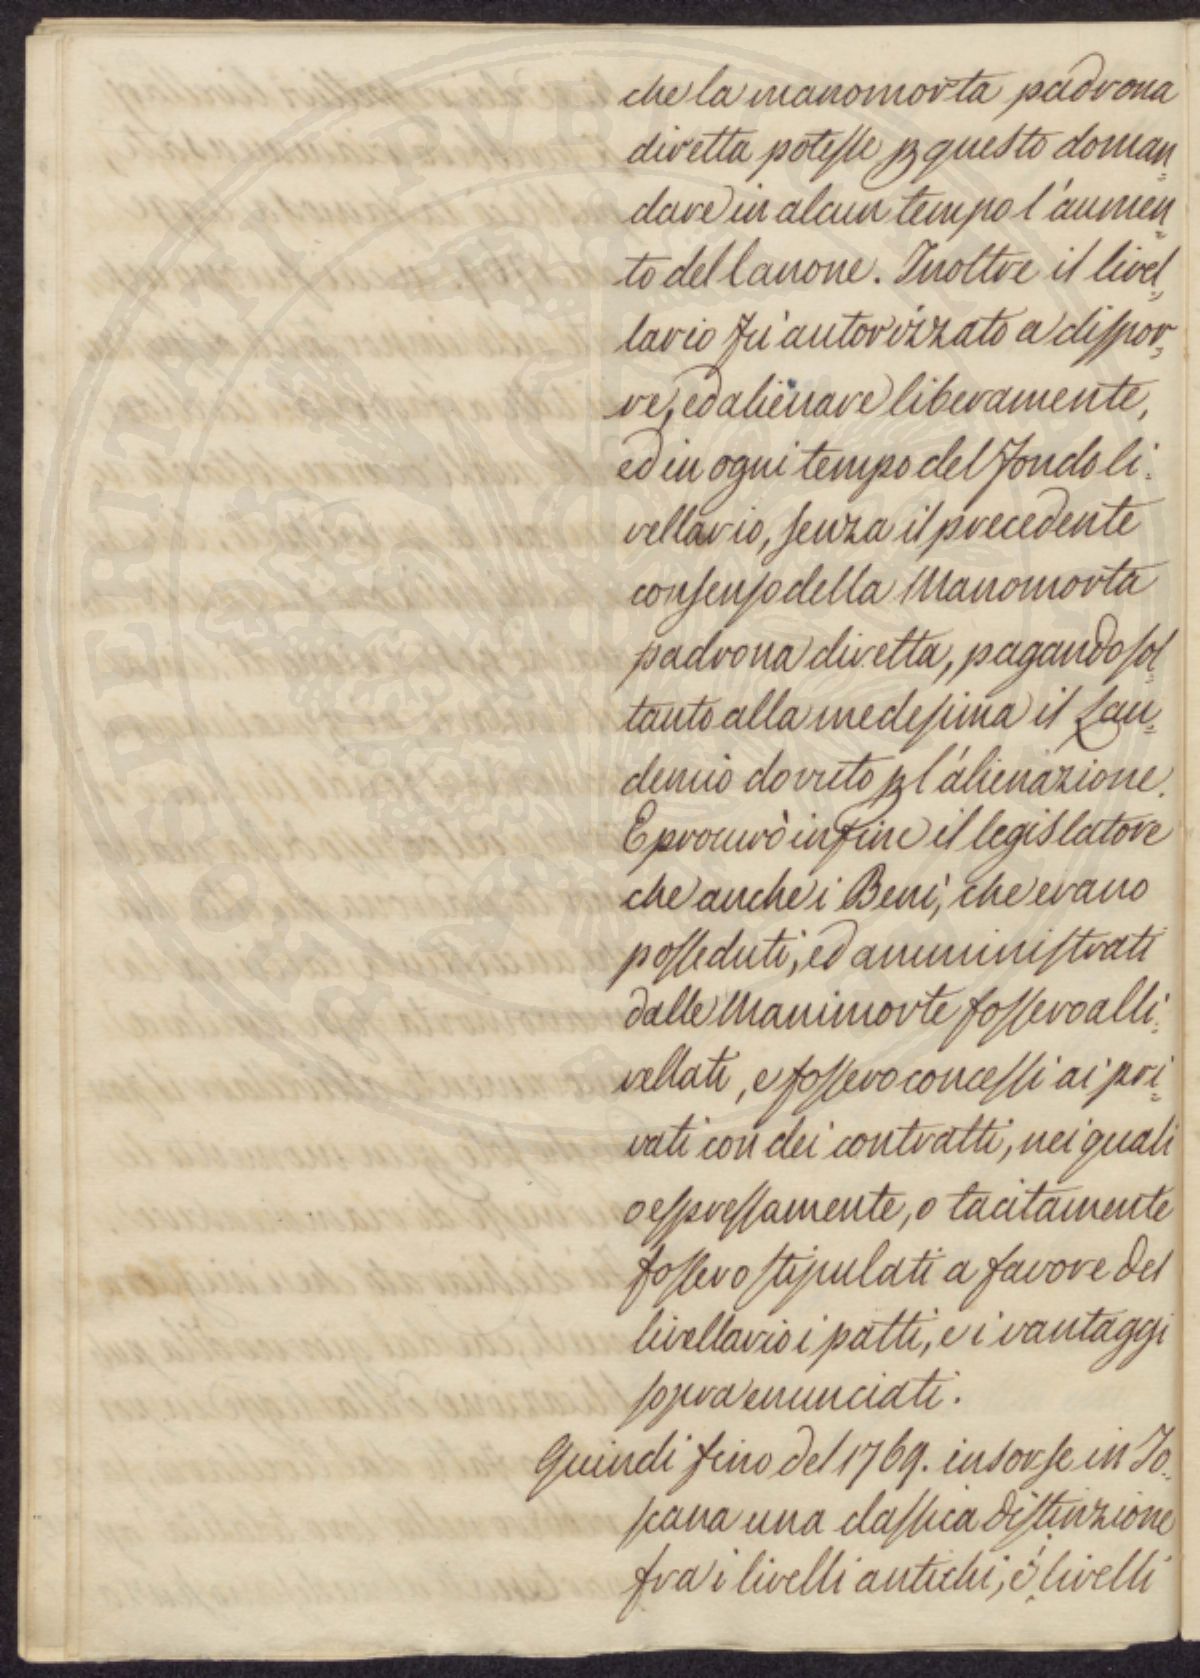 che la manomorta padrona
diretta potesse p questo doman=
dare in alcun tempo l'aumen=
to del Canone. Inoltre il livel=
lario fù autorizzato a dispor=
re, ed alienare liberamente,
ed in ogni tempo del fondo li=
vellario, senza il precedente
consenso della Manomorta
padrona diretta, pagando sol=
tanto alla medesima il Lau=
demio dovuto p l'alienazione.
E procurò infine il legislatore
che anche i Beni, che erano
posseduti, ed amministrati
dalle Manimorte fossero alli=
vellati, e fossero concessi ai pri=
vati con dei contratti, nei quali
o espressamente, o tacitamente
fossero stipulati a favore del
livellario i patti, e i vantaggi
sopra enunciati.
Quindi fino del 1769. insorse in To=
scana una classica distinzione
fra i livelli antichi, e livelli